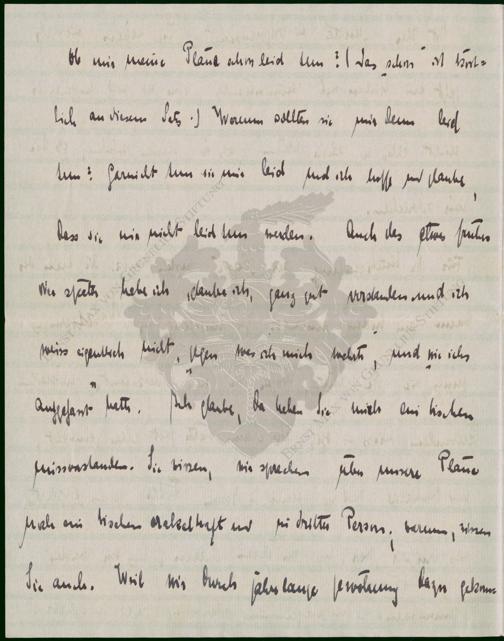 Ob mir meine Pläne schon leid tun? (Das "schon" ist köst=
lich an diesem Satz.) Warum sollten sie mir denn leid
tun? Garnicht tun sie mir leid und ich hoffe und glaube,
dass sie mir nicht leid tun werden. Auch das etwas früher
wie später habe ich, glaube ich, ganz gut verstanden und ich
weiss eigentlich nicht, "gegen was ich mich wehrte", und "wie ichs
aufgefasst" hatte. Ich glaube, da haben Sie mich ein bischen
missverstanden. Sie wissen, wir sprechen über unsere Pläne
noch ein bischen ekelhaft und in dritter Person, warum, wissen
Sie auch. Weil wir durch jahrelange Gewöhnung dazu gekomm
ERNST MAX VON GRUNELIUS-STIFTUNG